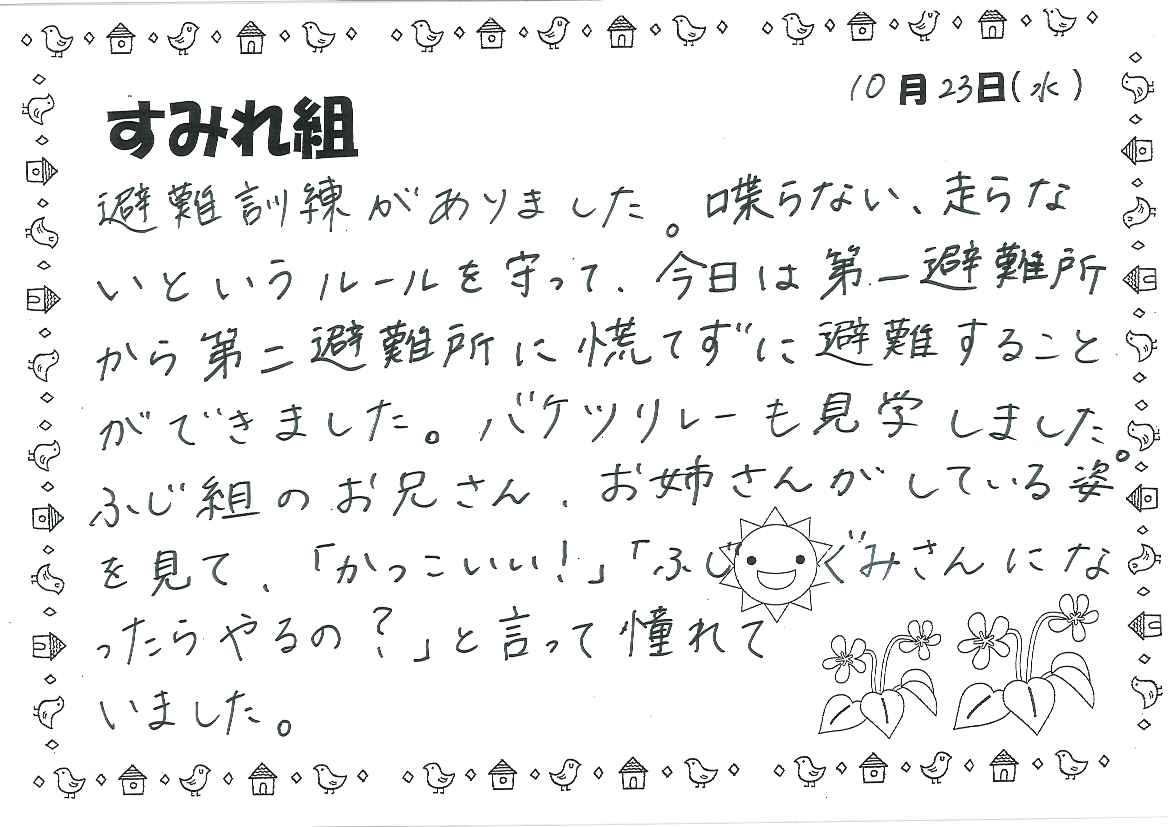 10月23日(水)
すみれ組
避難訓練がありました。喋らない、走らな
いというルールを守って、今日は第一避難所
から第二避難所に慌てずに避難すること
ができました。バケツリレーも見学しました。
ふじ組のお兄さん、お姉さんがしている姿
を見て、「かっこいい!」「ふじぐみさんにな
ったらやるの?」と言って憧れて
いました。